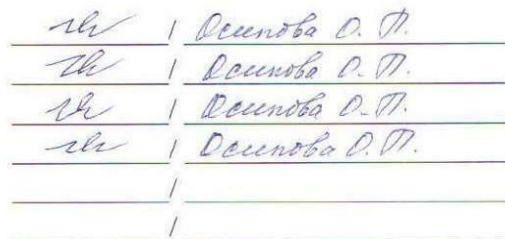 / Осипова О. П.
/ Осипова О. П.
/ Осипова О. П.
/ Осипова О. П.
/
/